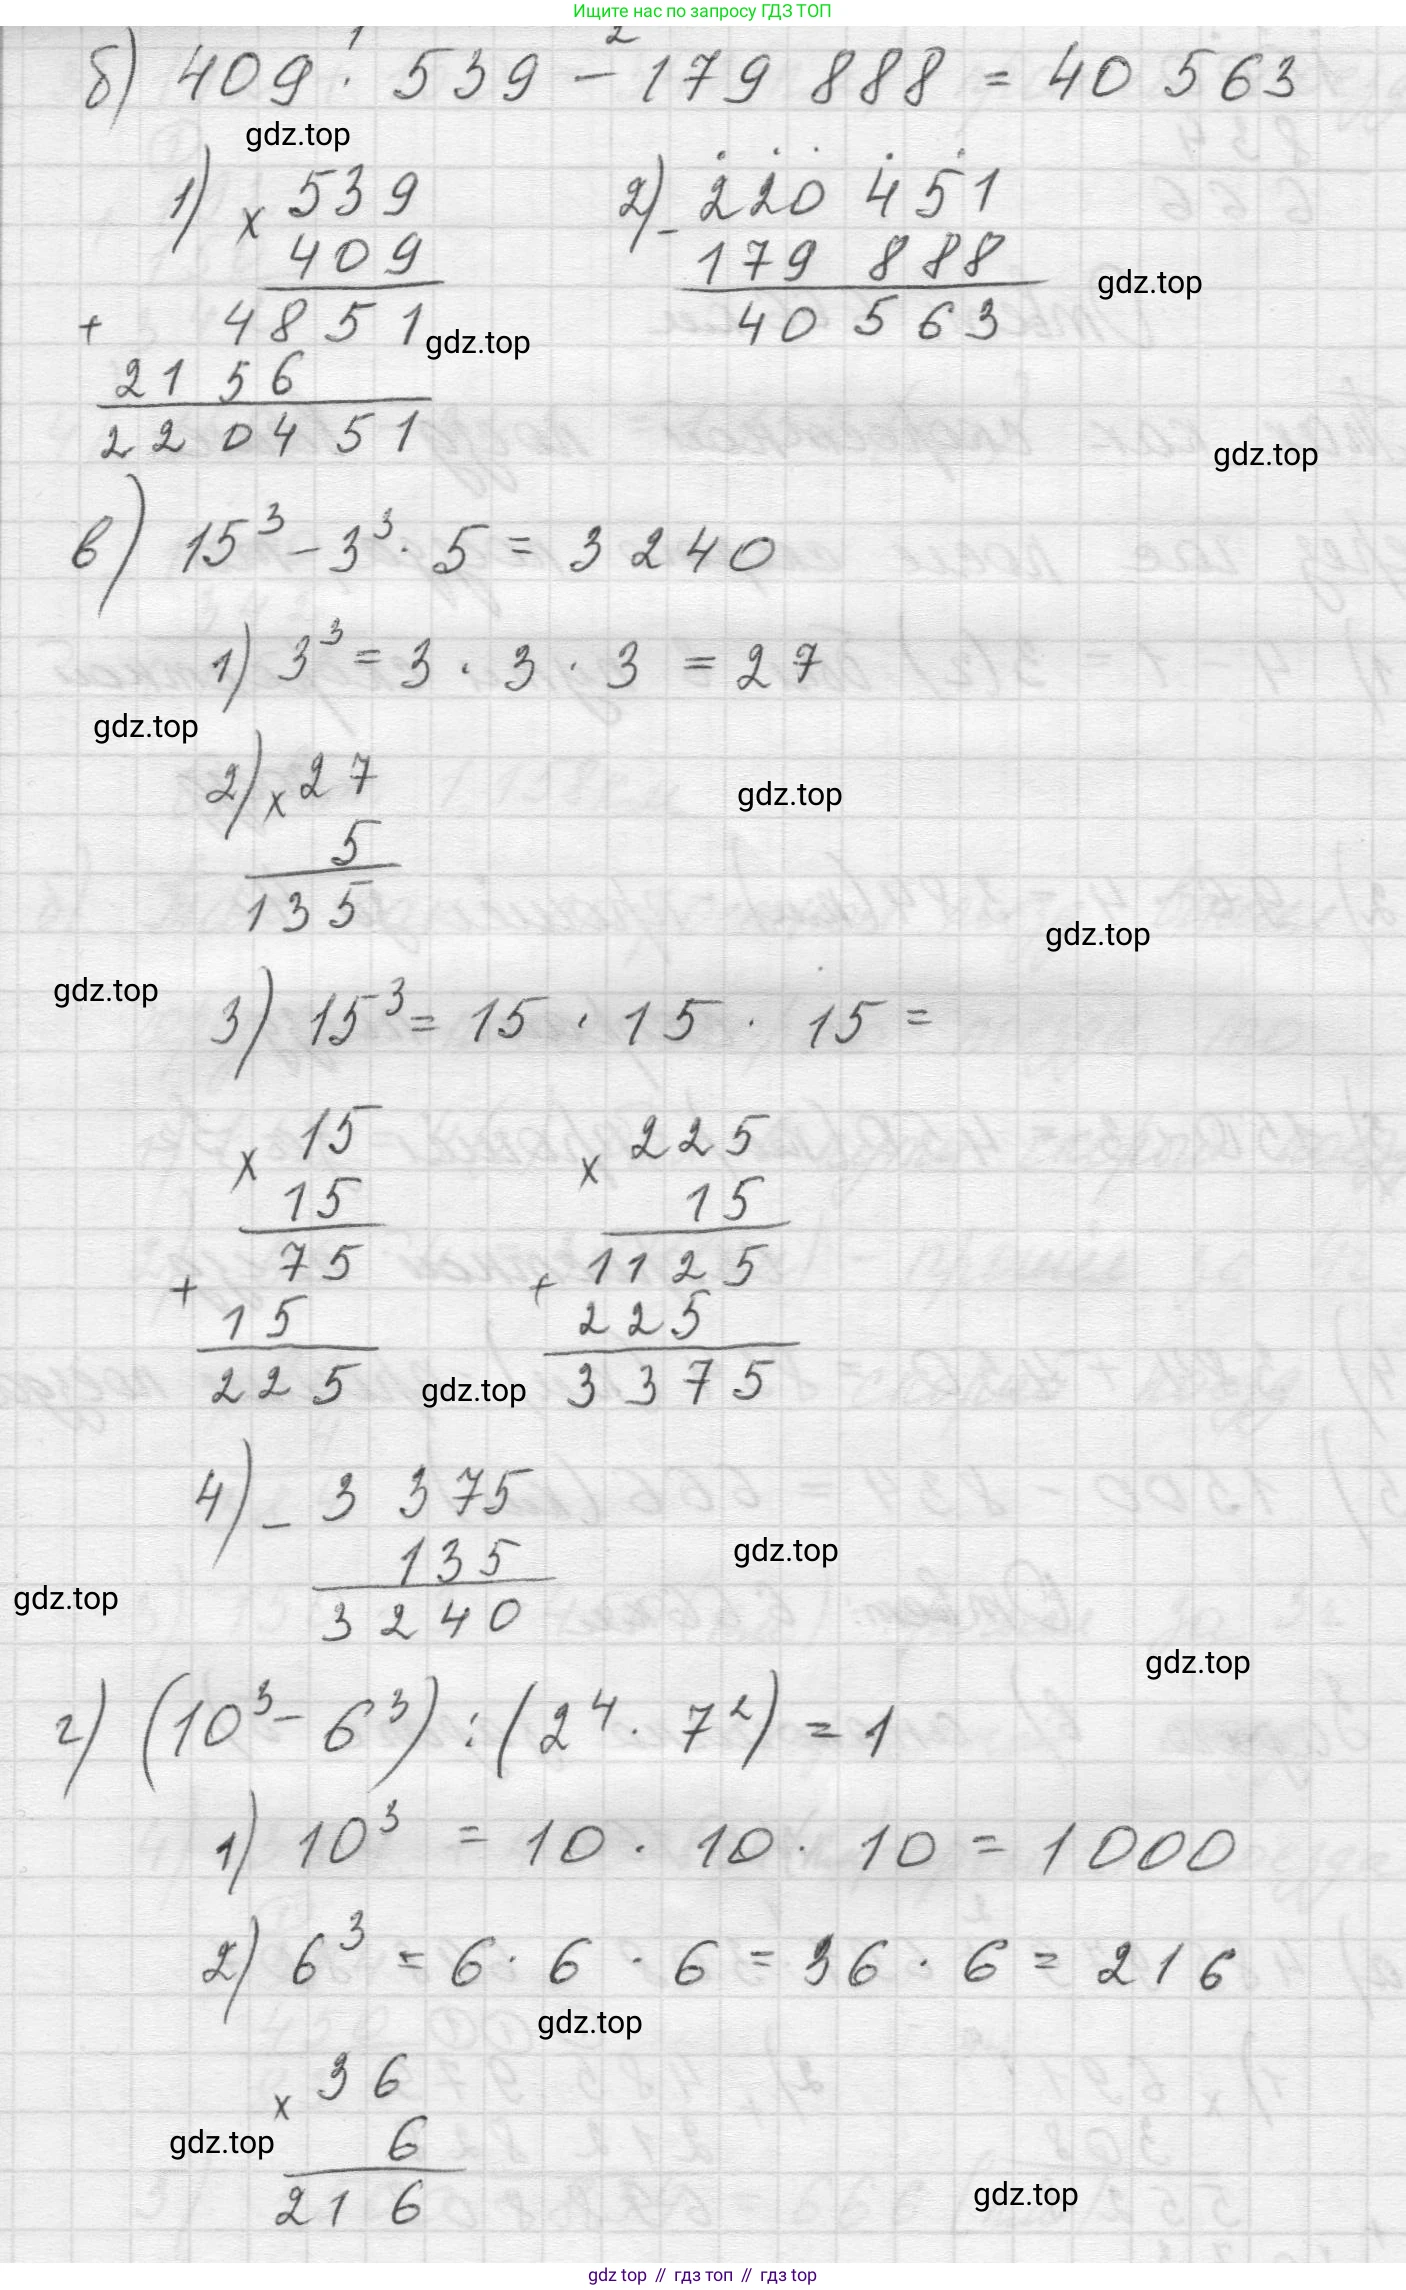 Ищите нас по запросу ГДЗ ТОП
1 2
б) 409 · 539 - 179 888 = 40 563
gdz.top
1) × 539
409
+ 4851
2156
220451
gdz.top
2) - 220 451
179 888
40 563
gdz.top
gdz.top
в) 15³ - 3³ · 5 = 3 240
1) 3³ = 3 · 3 · 3 = 27
gdz.top
2) × 27
5
135
gdz.top
gdz.top
gdz.top
3) 15³ = 15 · 15 · 15 =
× 15
15
+ 75
15
225
× 225
15
+ 1125
225
3375
gdz.top
4) - 3 375
135
3240
gdz.top
gdz.top
gdz.top
г) (10³ - 6³) : (2⁴ · 7²) = 1
1) 10³ = 10 · 10 · 10 = 1000
2) 6³ = 6 · 6 · 6 = 36 · 6 = 216
gdz.top
× 36
6
216
gdz.top
gdz.top
gdz top // гдз топ // гдз top